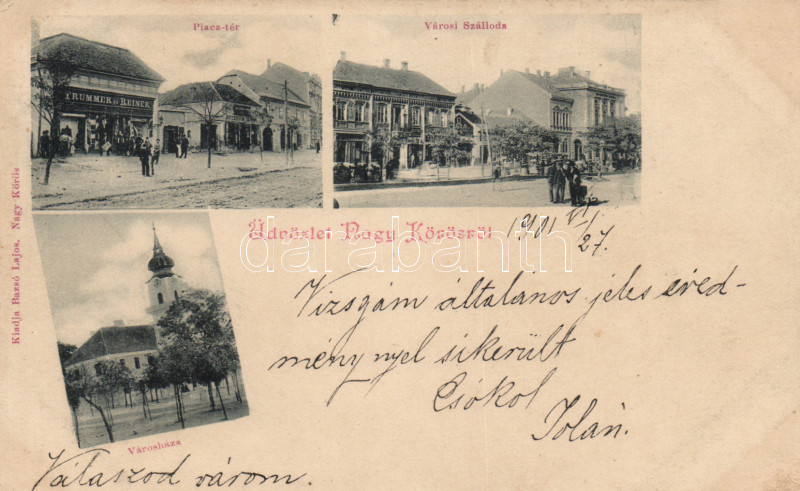 Piacz-tér
Városi Szálloda
TRUMMER és REINER
Üdvözlet Nagy Kőrösről
darabanth
1901 VI/27.
Vizsgám általános jeles ered-
ménynyel sikerült
Csókol
Jolán.
Városháza
Válaszod várom.
Kiadja Bazsó Lajos, Nagy Kőrös